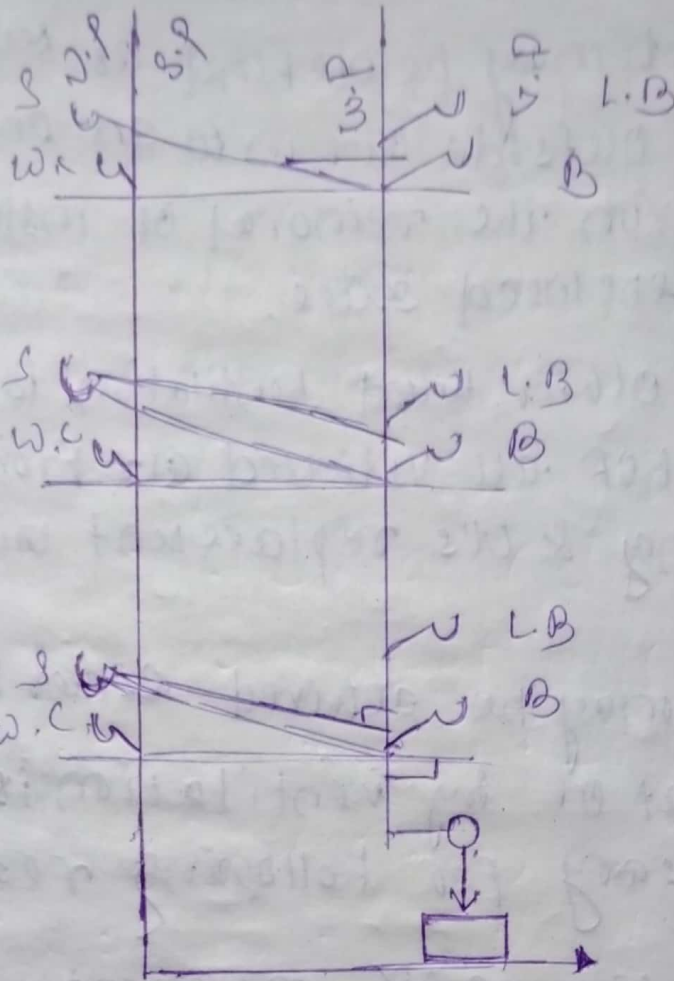 V.P S.P W.P V.P
S L.B
W.C B
S L.B
W.C B
L.B
S B
W.C